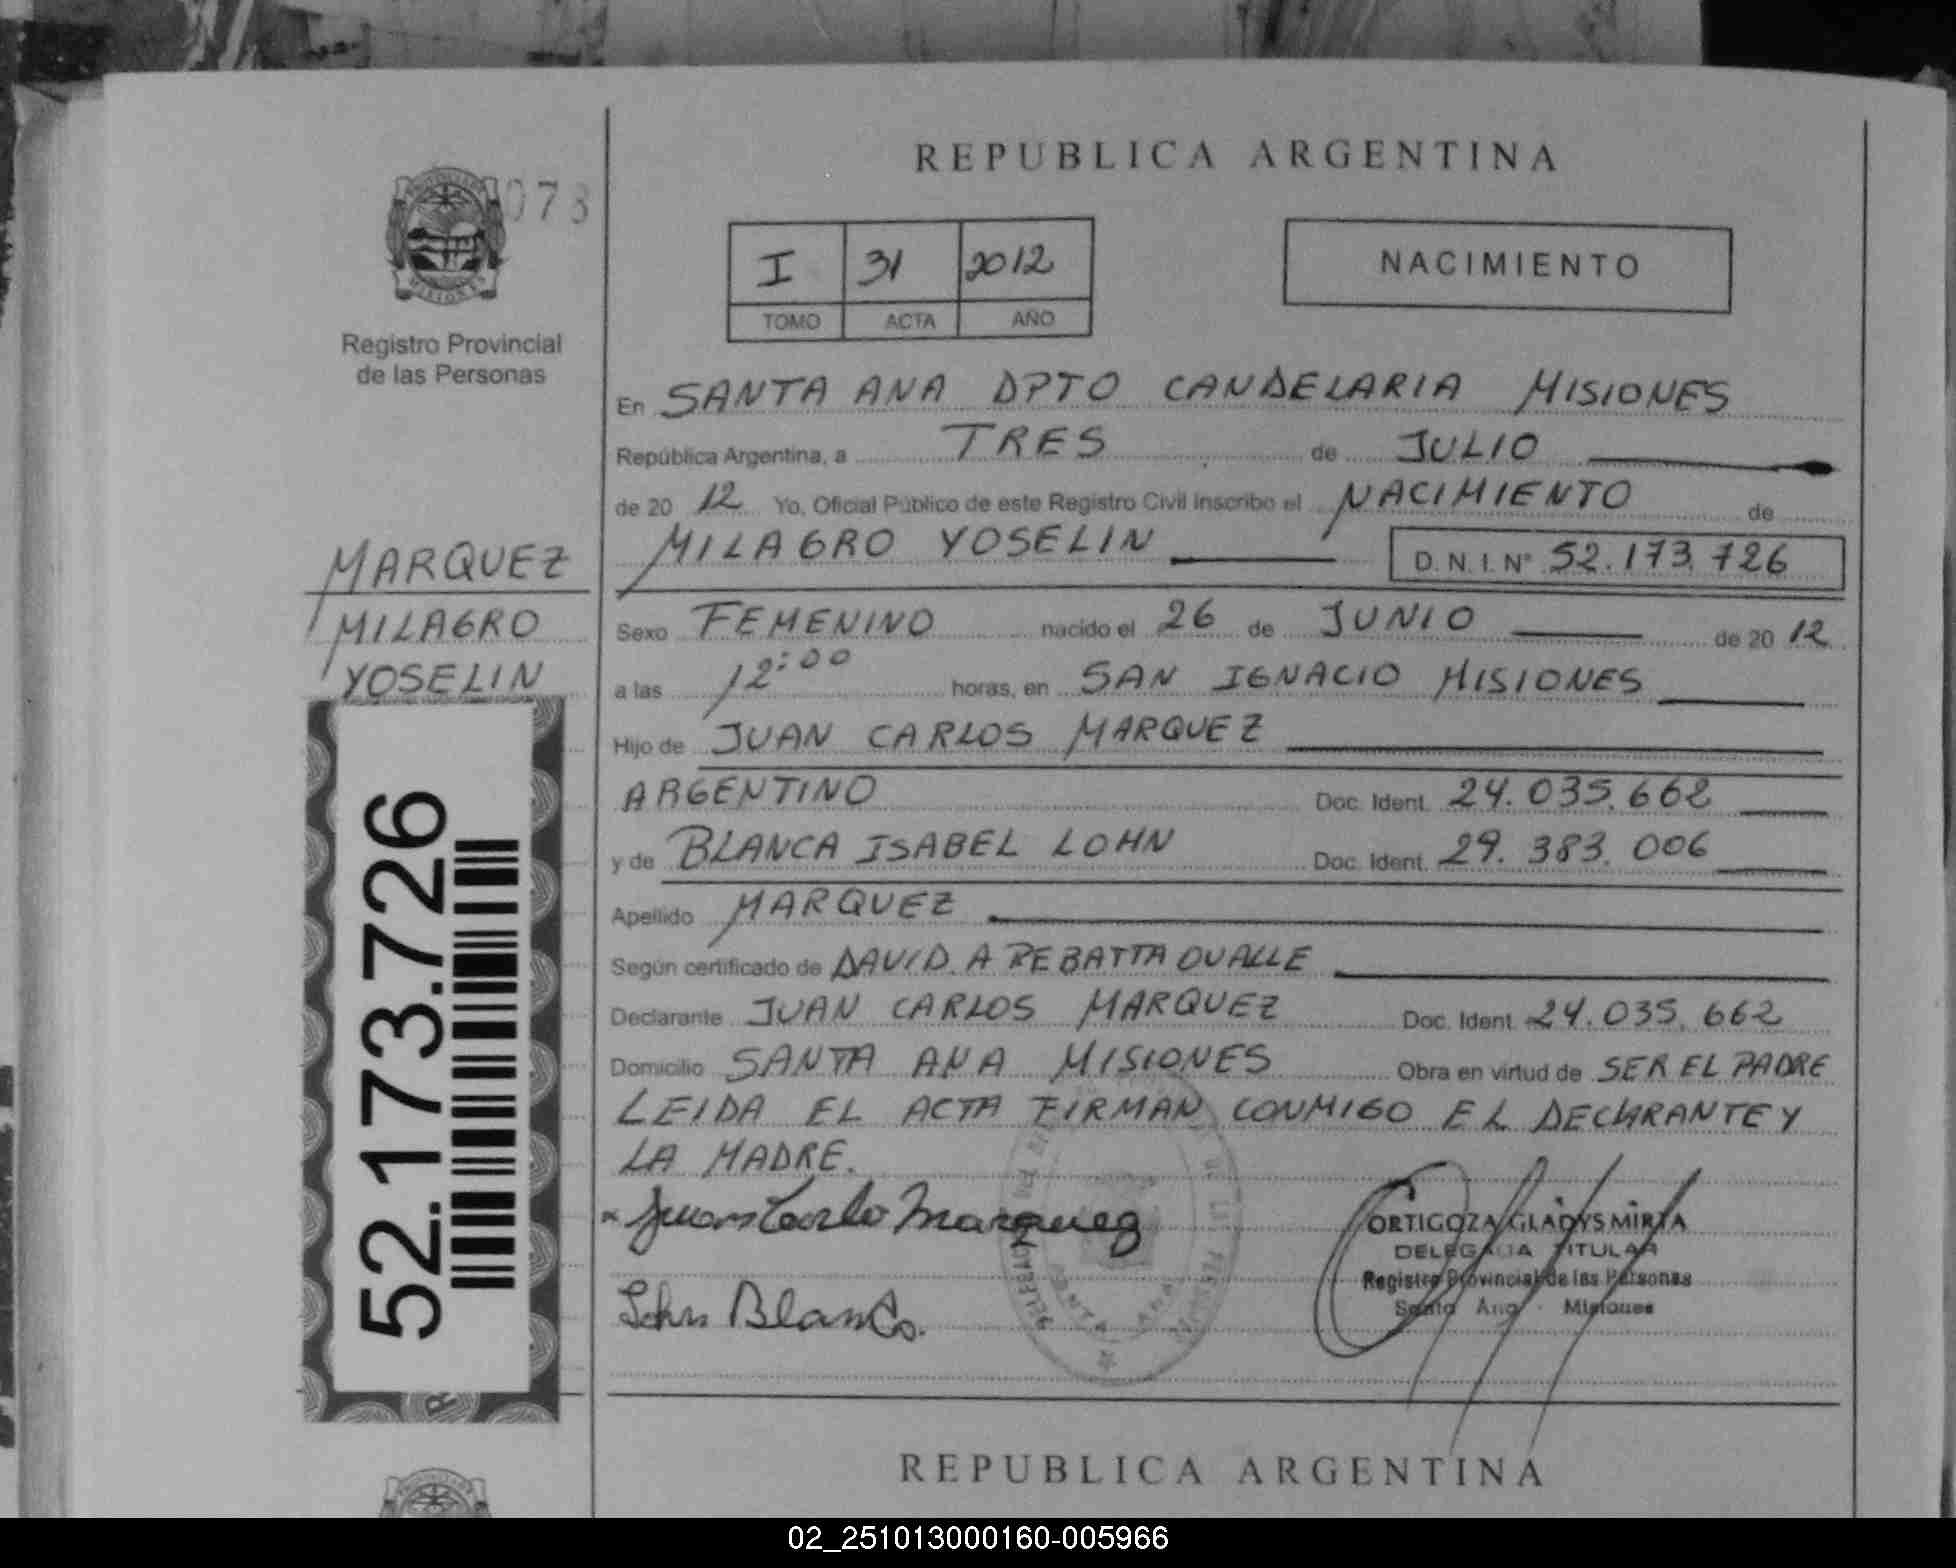 REPUBLICA ARGENTINA
073
I 31 2012
TOMO ACTA AÑO
NACIMIENTO
Registro Provincial
de las Personas
MARQUEZ
MILAGRO
YOSELIN
52.173.726
En SANTA ANA DPTO CANDELARIA MISIONES
República Argentina, a TRES de JULIO
de 20 12 Yo, Oficial Público de este Registro Civil inscribo el NACIMIENTO de
MILAGRO YOSELIN D.N.I.Nº 52.173.726
Sexo FEMENINO nacido el 26 de JUNIO de 20 12
a las 12:00 horas, en SAN IGNACIO MISIONES
Hijo de JUAN CARLOS MARQUEZ
ARGENTINO Doc. Ident. 24.035.662
y de BLANCA ISABEL LOHN Doc. Ident. 29.383.006
Apellido MARQUEZ
Según certificado de DAVID. A REBATTA OVALLE
Declarante JUAN CARLOS MARQUEZ Doc. Ident. 24.035.662
Domicilio SANTA ANA MISIONES Obra en virtud de SER EL PADRE
LEIDA EL ACTA FIRMAN CONMIGO EL DECLARANTE Y
LA MADRE.
Juan Carlo Marquez
Lohn Blanca.
ORTIGOZA GLADYS MIRTA
DELEGADA TITULAR
Registro Provincial de las Personas
Santa Ana - Misiones
REPUBLICA ARGENTINA
02_251013000160-005966